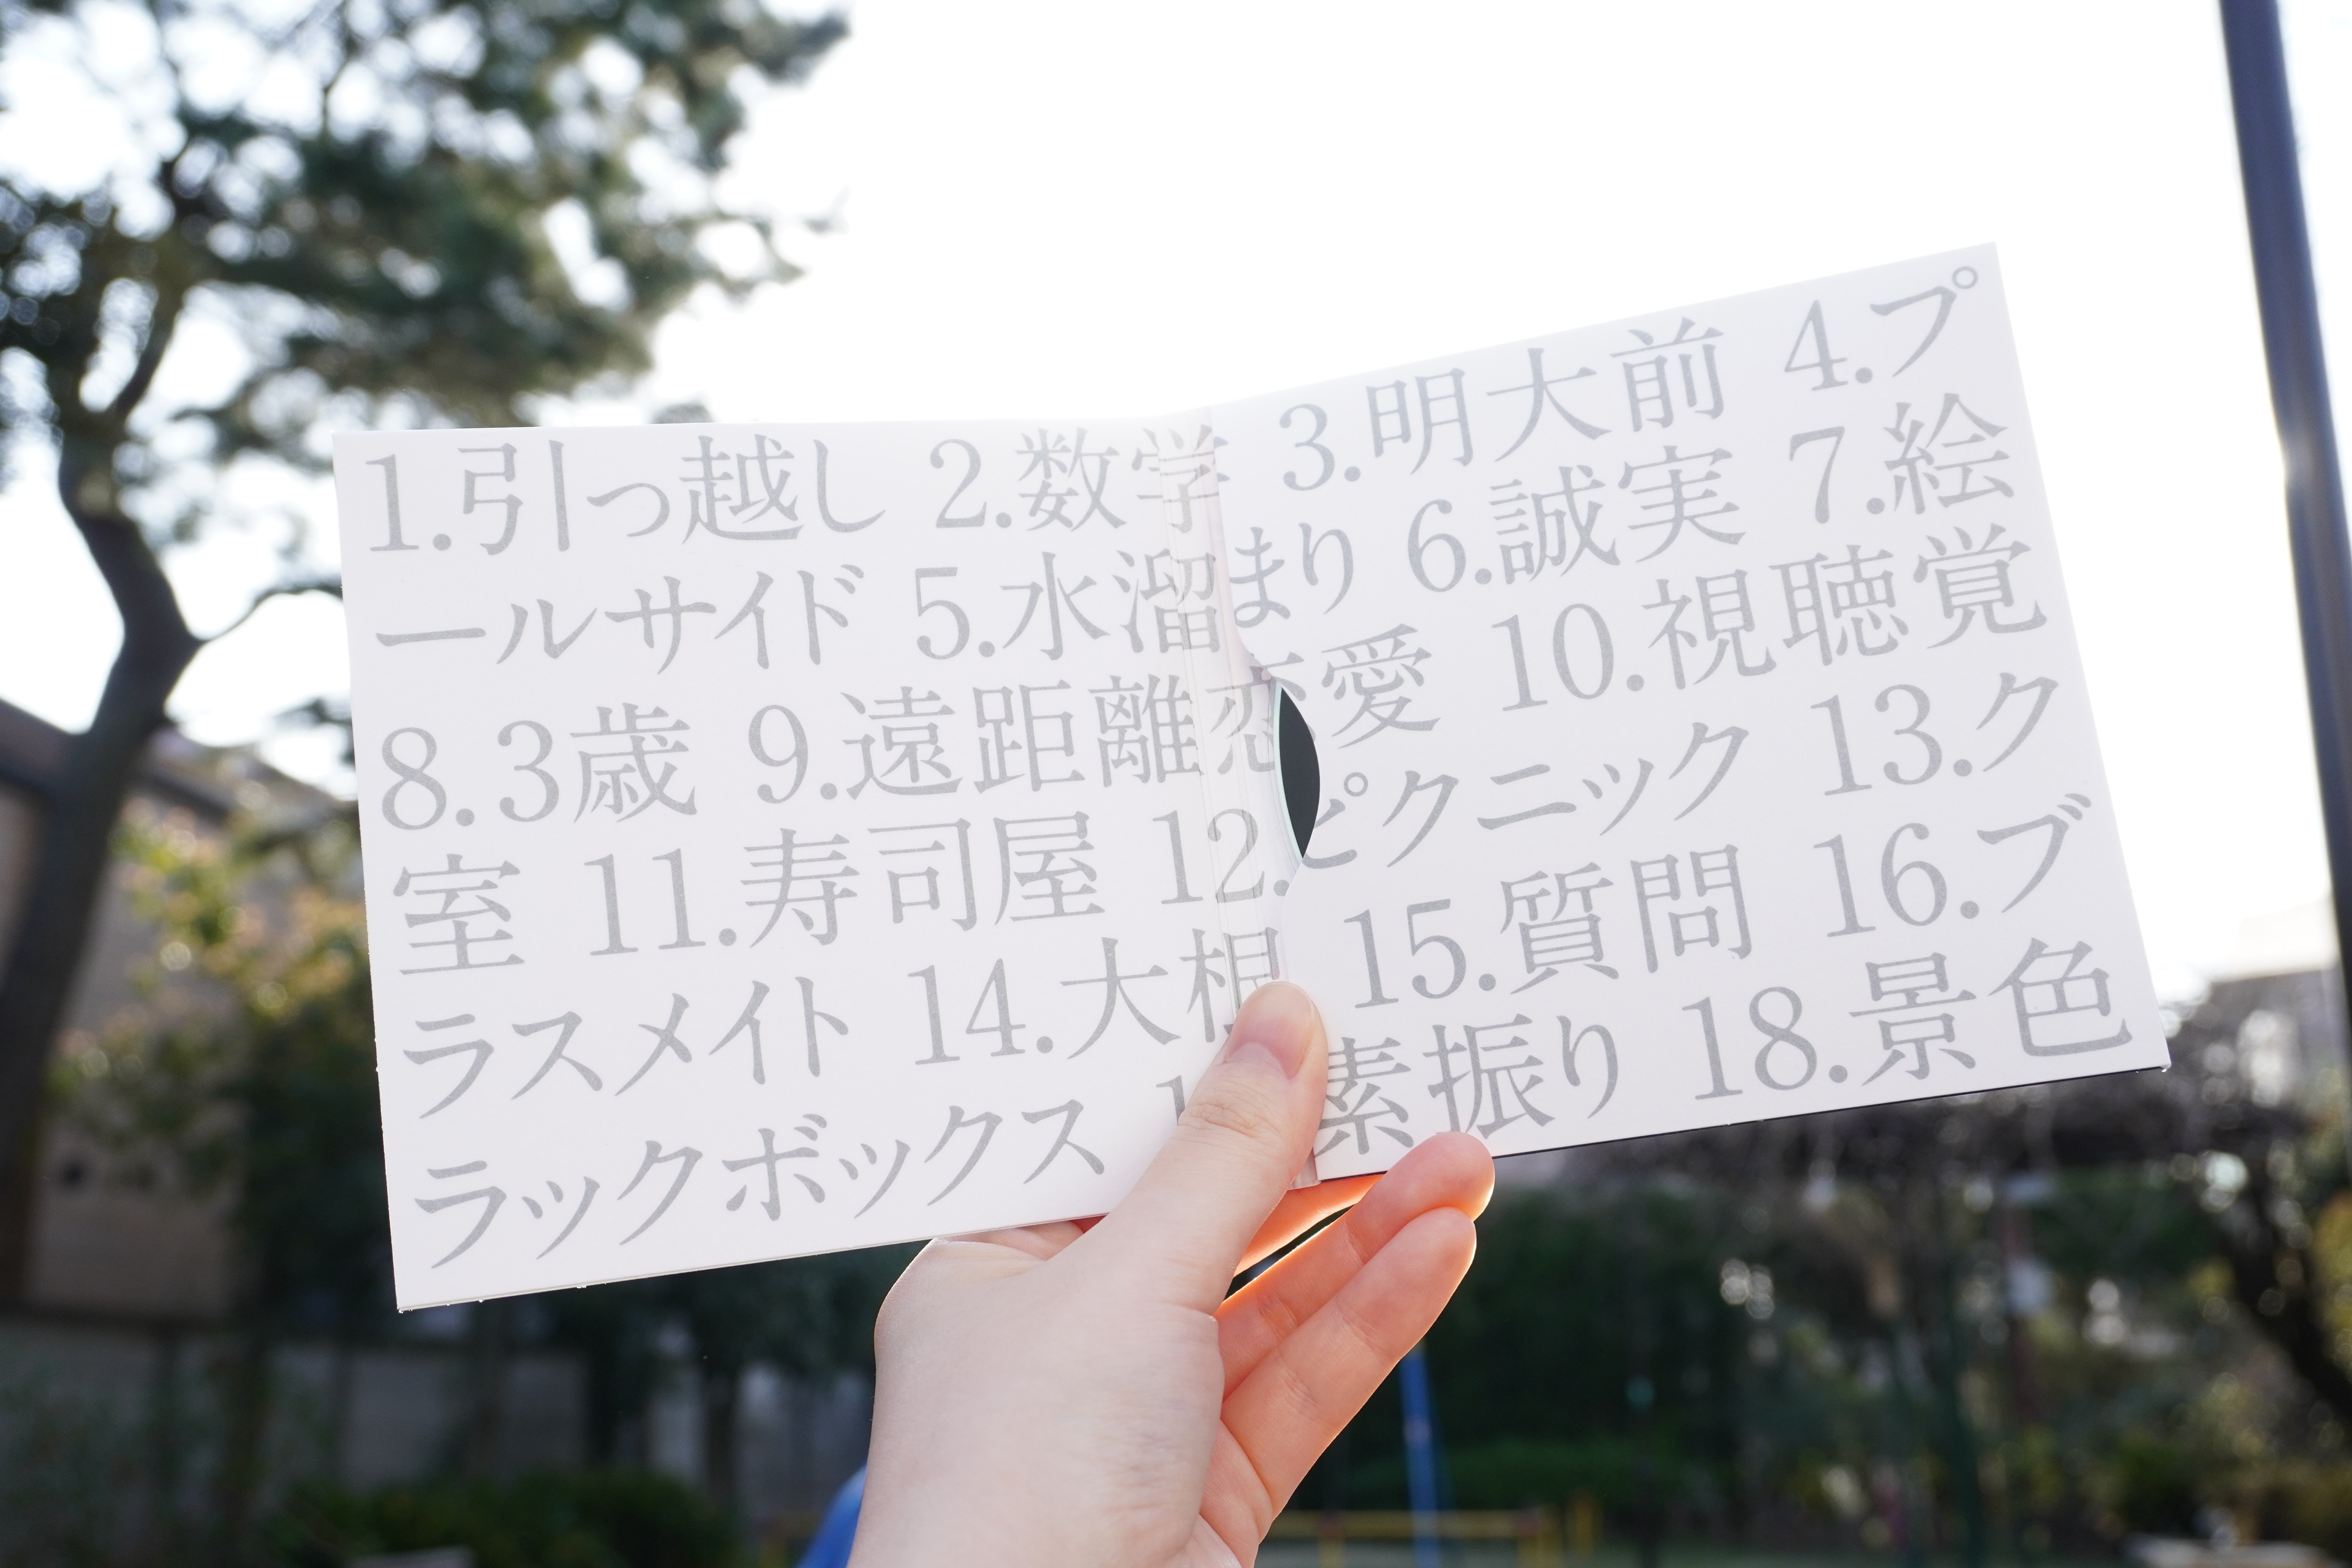 1.引っ越し 2.数学 3.明大前 4.プ
ールサイド 5.水溜まり 6.誠実 7.絵
8.3歳 9.遠距離恋愛 10.視聴覚
室 11.寿司屋 12.ピクニック 13.ク
ラスメイト 14.大根 15.質問 16.ブ
ラックボックス 素振り 18.景色